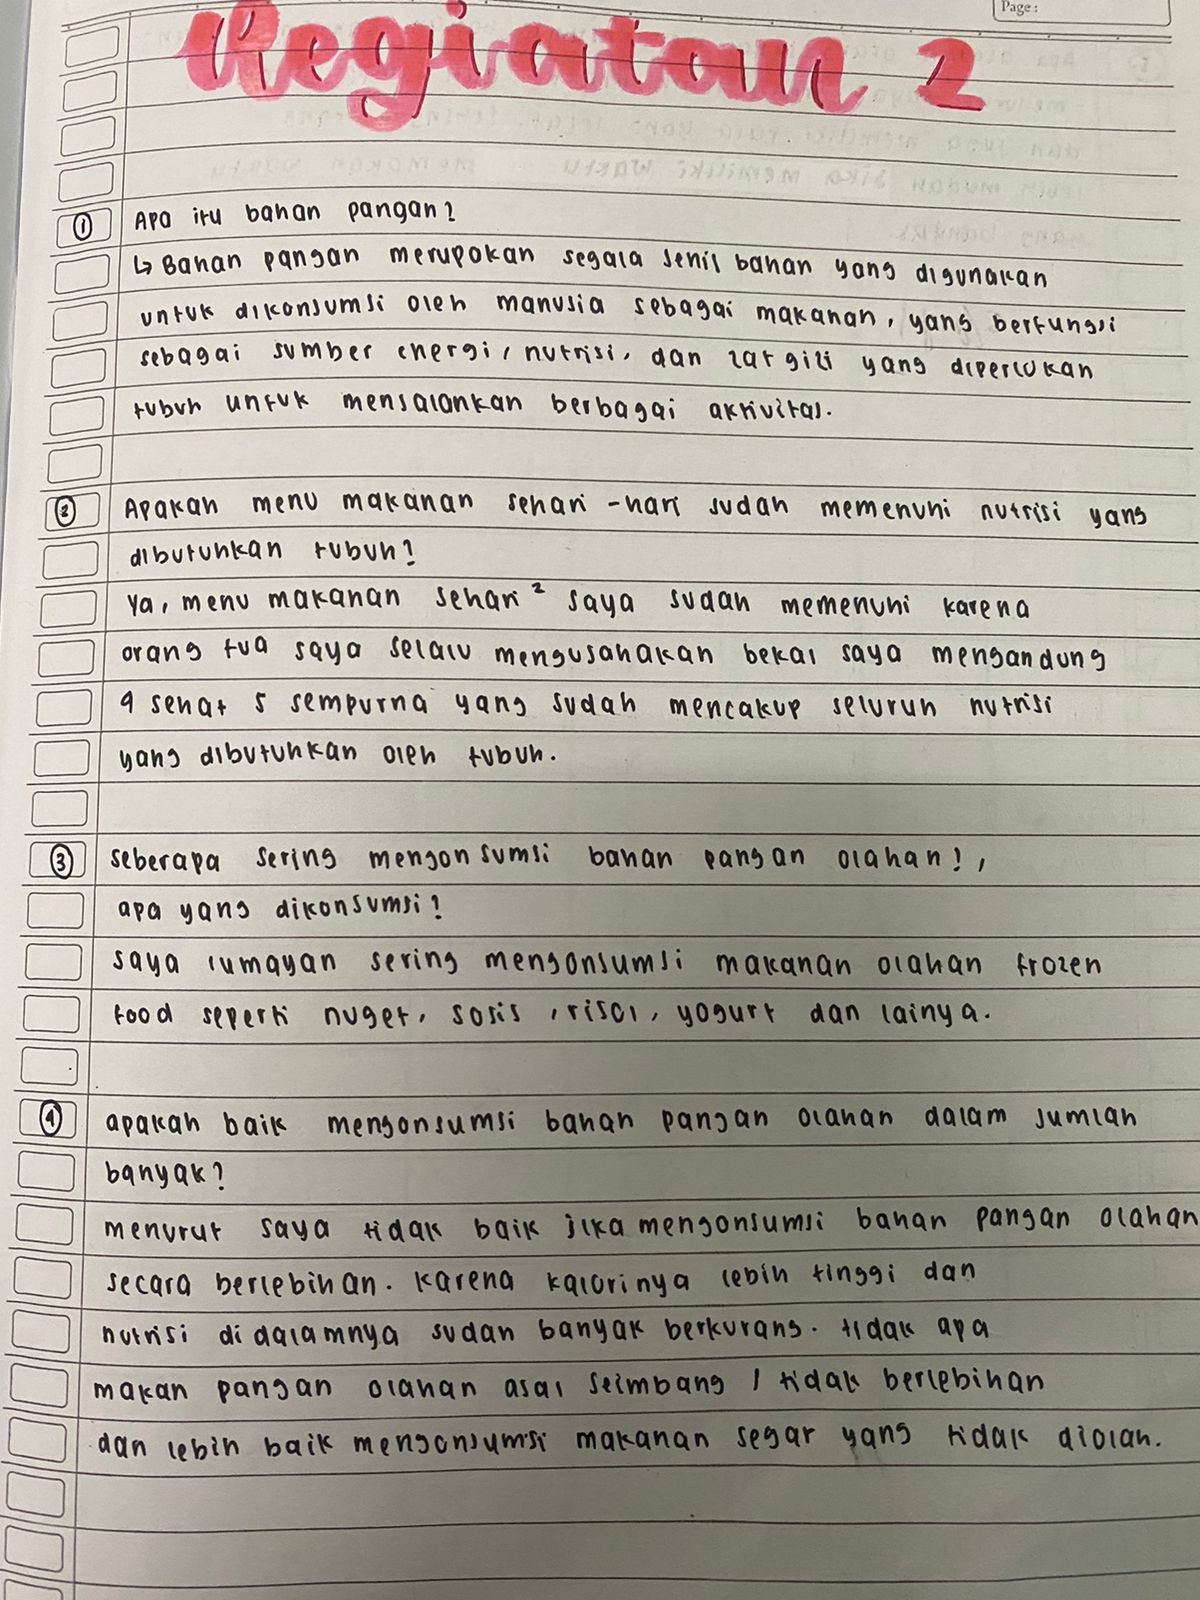 Page:
Kegiatan 2
① Apa itu bahan pangan?
↳ Bahan pangan merupakan segala jenis bahan yang digunakan
untuk dikonsumsi oleh manusia sebagai makanan, yang berfungsi
sebagai sumber energi, nutrisi, dan zat gizi yang diperlukan
tubuh untuk menjalankan berbagai aktivitas.
② Apakah menu makanan sehari-hari sudah memenuhi nutrisi yang
dibutuhkan tubuh?
Ya, menu makanan sehari² saya sudah memenuhi karena
orang tua saya selalu mengusahakan bekal saya mengandung
4 sehat 5 sempurna yang sudah mencakup seluruh nutrisi
yang dibutuhkan oleh tubuh.
③ seberapa sering mengonsumsi bahan pangan olahan?,
apa yang dikonsumsi?
saya lumayan sering mengonsumsi makanan olahan frozen
food seperti nuget, sosis, risol, yogurt dan lainya.
④ apakah baik mengonsumsi bahan pangan olahan dalam jumlah
banyak?
menurut saya tidak baik jika mengonsumsi bahan pangan olahan
secara berlebihan. karena kalorinya lebih tinggi dan
nutrisi di dalamnya sudah banyak berkurang. tidak apa
makan pangan olahan asal seimbang / tidak berlebihan
dan lebih baik mengonsumsi makanan segar yang tidak diolah.